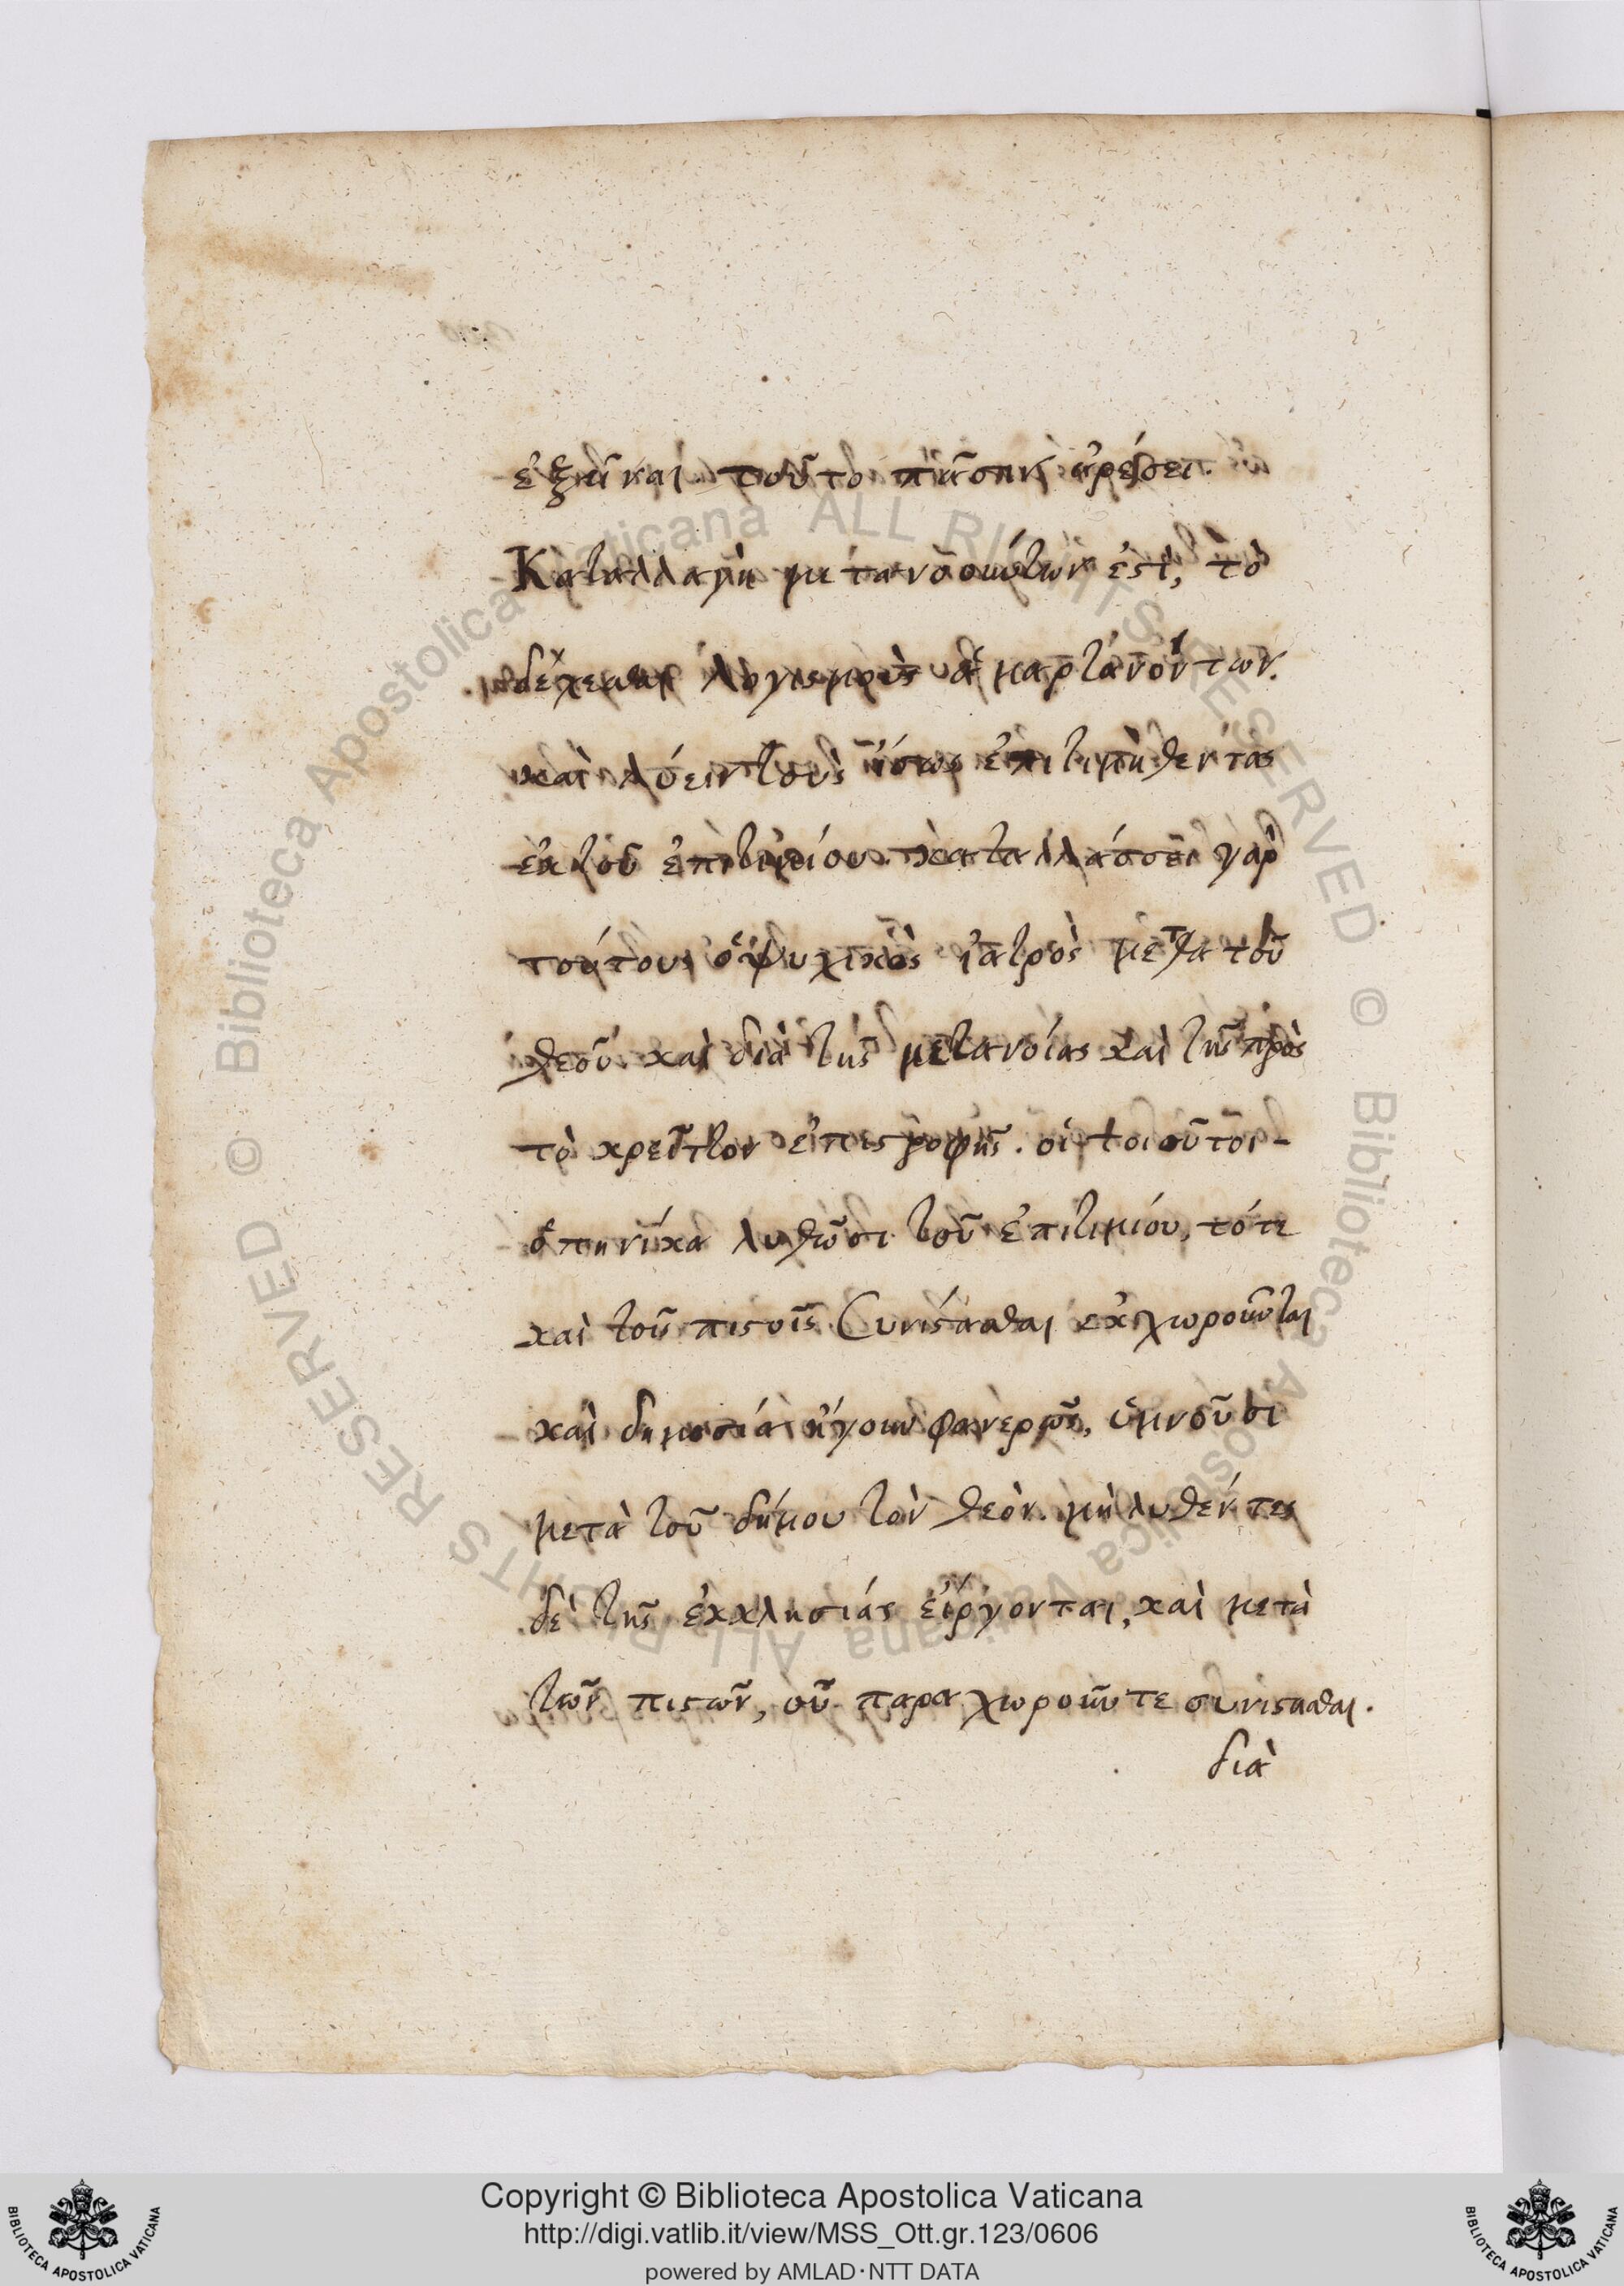 ἐξεῖναι τοῦτο πᾶσιν ἀρέσει.
Καταλλαγὴ μετανοούντων ἐστὶ, τὸ
δέχεσθαι λογισμοὺς ἁμαρτανόντων.
καὶ λύειν τοὺς ἴσως ἐπιτιμηθέντας
ἐκ τοῦ ἐπιτιμίου. καταλλάσσει γὰρ
τούτους ὁ ψυχικὸς ἰατρὸς μετὰ τοῦ
θεοῦ καὶ διὰ τῆς μετανοίας καὶ τῆς πρὸς
τὸ κρεῖττον ἐπιστροφῆς. οἱ τοιοῦτοι
ὁπηνίκα λυθῶσι τοῦ ἐπιτιμίου, τότε
καὶ τοῖς πιστοῖς συνίστασθαι ἐκχωροῦνται
καὶ δημοσίᾳ ἤγουν φανερῶς, ὑμνοῦσι
μετὰ τοῦ δήμου τὸν θεὸν. μὴ λυθέντες
δὲ τῆς ἐκκλησίας εἴργονται, καὶ μετὰ
τῶν πιστῶν, οὐ παραχωροῦντε συνίστασθαι.
διὰ
Copyright © Biblioteca Apostolica Vaticana
http://digi.vatlib.it/view/MSS_Ott.gr.123/0606
powered by AMLAD·NTT DATA
BIBLIOTECA APOSTOLICA VATICANA
BIBLIOTECA APOSTOLICA VATICANA
© Biblioteca Apostolica Vaticana ALL RIGHTS RESERVED © Biblioteca Apostolica Vaticana ALL RIGHTS RESERVED